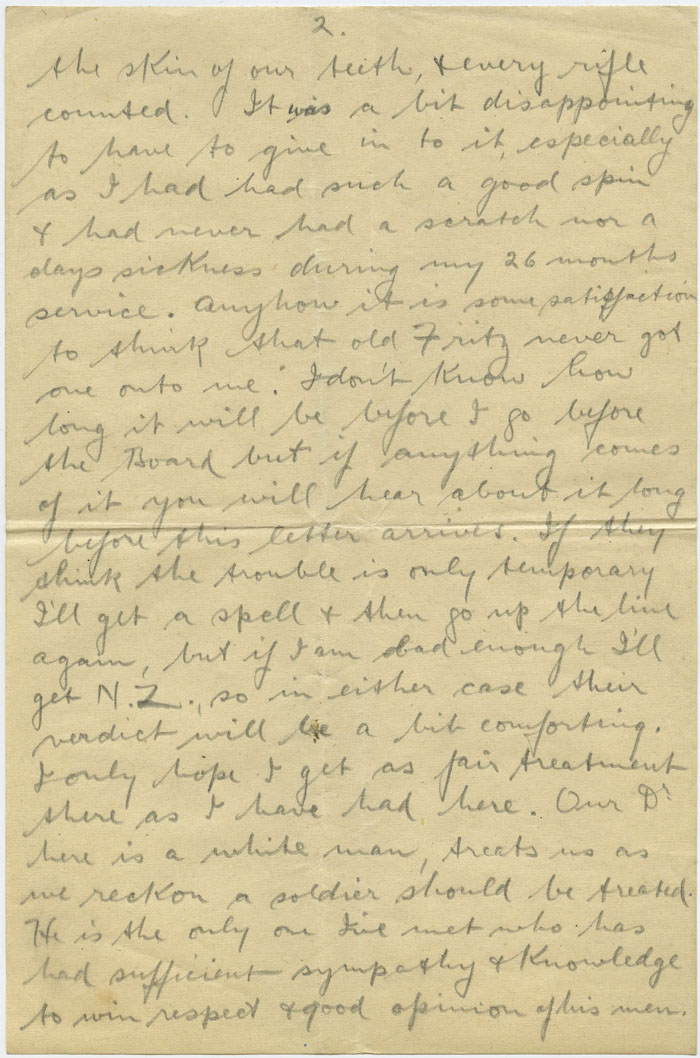 2.
the skin of our teeth, & every rifle
counted. It was a bit disappointing
to have to give in to it, especially
as I had had such a good spin
& had never had a scratch nor a
days sickness during my 26 months
service. Anyhow it is some satisfaction
to think that old Fritz never got
one onto me. I don't know how
long it will be before I go before
the Board but if anything comes
of it you will hear about it long
before this letter arrives. If they
think the trouble is only temporary
I'll get a spell & then go up the line
again, but if I am bad enough I'll
get N.Z., so in either case their
verdict will be a bit comforting.
I only hope I get as fair treatment
there as I have had here. Our Dr
here is a white man, treats us as
we reckon a soldier should be treated.
He is the only on I've met who has
had sufficient sympathy & knowledge
to win respect & good opinion of his men.